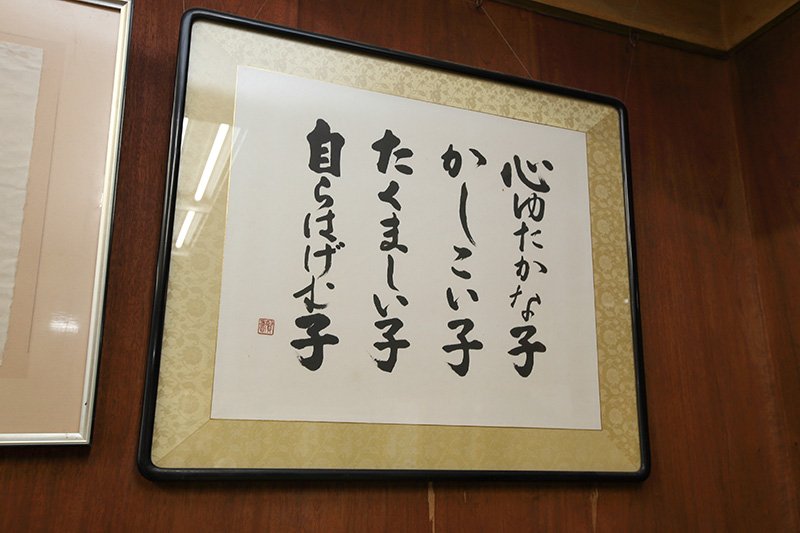 心ゆたかな子
かしこい子
たくましい子
自らはげむ子